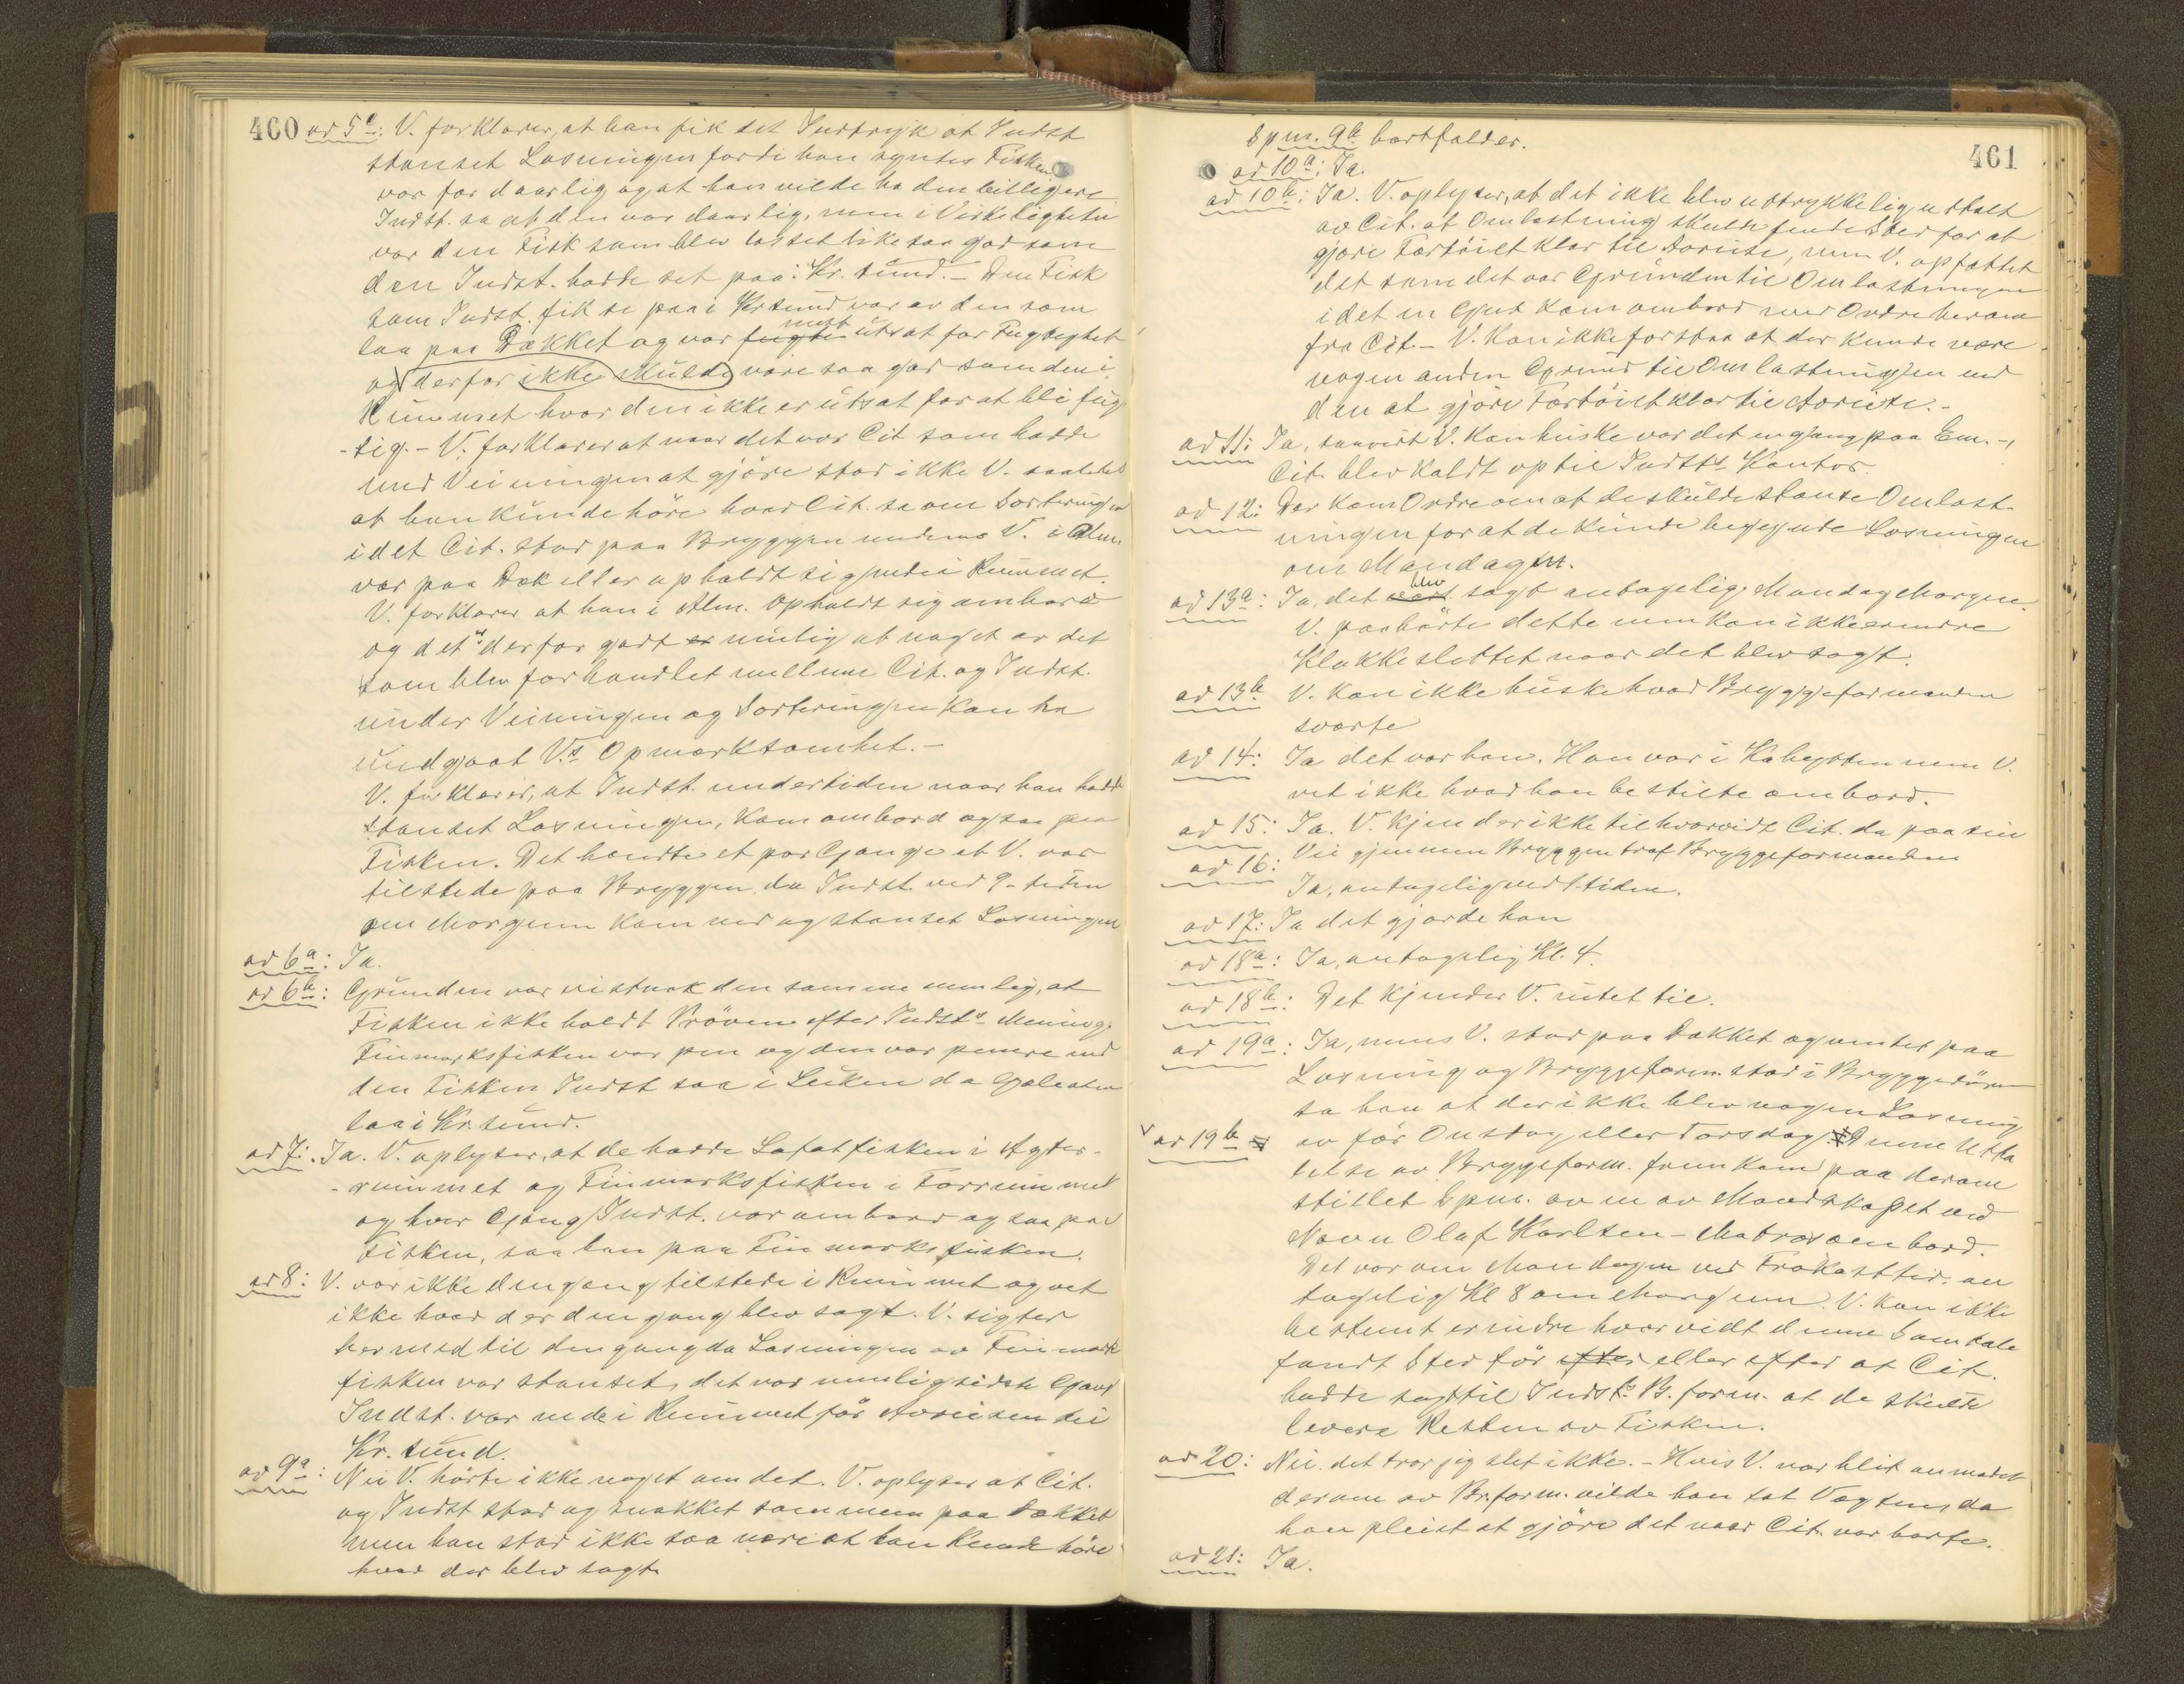 460
ad 5e: V. forklarer, at han fik det Indtryk at Indst
stanset Losningen fordi han syntes Fisken
var for daarlig og at han vilde ha den billigere
Indst. sa at den var daarlig, men i Virkeligheten
var den Fisk som blev losset like saa god som
den Indst. hadde set paa i Kr.sund. – Den Fisk
som Indst. fik se paa i Kr.sund var av den som
laa paa Dækket og var mest utsat for Fugtighet
og derfor ikke skulde være saa god som den i
Rummet hvor den ikke er utsat for at bli fug-
-tig. – V. forklarer at naar det var Cit som hadde
med Veiningen at gjøre stod ikke V. saaledes
at han kunde höre hvad Cit. sa om Sorteringen
idet Cit. stod paa Bryggen medens V. i Alm.
var paa Dæk eller opholdt sig nede i Rummet.
V. forklarer at han i Alm. opholdt sig ombord
og det er derfor godt mulig at noget av det
som blev forhandlet mellem Cit. og Indst.
under Veiningen og Sorteringen kan ha
undgaat V.s Opmærksomhet. –
V. forklarer, at Indst. undertiden naar han hadde
stanset Losningen, kom ombord og saa paa
Fisken. Det hændte et par Gange at V. var
tilstede paa Bryggen, da Indst. ved 9-tiden
om Morgenen kom ned og stanset Losningen
ad 6a: Ja.
ad 6b: Grunden var vistnok den samme nemlig, at
Fisken ikke holdt Pröven efter Indsts Mening.
Finmarksfisken var pen og den var penere end
den Fisken Indst saa i Luken da Galeasen
laa i Kr.sund.
ad 7: Ja. V. oplyser, at de hadde Lofotfisken i Agter-
-rummet og Finmarksfisken i Forrummet
og hver Gang Indst. var ombord og saa paa
Fisken, saa han paa Finmarksfisken.
ad 8: V. var ikke dengang tilstede i Rummet og vet
ikke hvad der dengang blev sagt. V. sigter
hermed til dengang da Losningen av Finmark
fisken var stanset, det var nemlig sidste Gang
Indst. var nede i Rummet för Avreisen til
Kr.sund.
ad 9a: Nei V. hörte ikke noget om det. V. oplyser at Cit.
og Indst stod og snakket sammen paa Dækket
men han stod ikke saa nære at han kunde höre
hvad der blev sagt
461
Spm. 9b bortfalder.
ad 10a: Ja.
ad 10b: Ja. V. oplyser, at det ikke blev udtrykkelig udtalt
av Cit. at Omlastning skulde finde Sted for at
gjøre Fartöiet klar til Avreise, men V. opfattet
det som det var Grunden til Omlastningen
idet en Gut kom ombord med Ordre herom
fra Cit. – V. kan ikke forstaa at der kunde være
nogen anden Grund til Omlastningen end
den at gjøre Fartöiet klar til Avreise. –
ad 11: Ja, saavidt V. kan huske var det engang paa Em. –,
Cit. blev kaldt op til Indsts Kontor.
ad 12: Der kom Ordre om at de skulde stanse Omlast-
ningen for at de kunde begynde Losningen
om Mandagen.
ad 13a: Ja, det blev sagt antagelig Mandag Morgen.
V. paahörte dette men kan ikke erindre
Klokkeslettet naar det blev sagt.
ad 13b V. kan ikke huske hvad Bryggeformanden
svarte
ad 14: Ja det var han. Han var i Kahytten men V.
vet ikke hvad han bestilte ombord.
ad 15: Ja. V. kjender ikke til hvorvidt Cit. da paa sin
Vei gjennem Bryggen traf Bryggeformanden
ad 16: Ja, antagelig ved 1-tiden.
ad 17: Ja det gjorde han
ad 18a: Ja, antagelig Kl. 4.
ad 18b: Det kjender V. intet til.
ad 19a: Ja, mens V. stod paa Dækket og ventet paa
Losning og Bryggeform. stod i Bryggedören
sa han at der ikke blev nogen Losning
ad 19b av för Onsdag eller Torsdag. Denne Utta
lelse av Bryggeform. fremkom paa derom
stillet Spm. av en av Mandskapet ved
Navn Olaf Karlsen – Matros ombord.
Det var om Mandagen ved Frokosttid, an
tagelig Kl 8 om Morgenen. V. kan ikke
bestemt erindre hvorvidt denne Samtale
fandt Sted för eller efter at Cit.
hadde sagt til Indsts B. form. at de skulde
levere Resten av Fisken.
ad 20: Nei det tror jeg slet ikke. – Hvis V. var blit anmodet
derom av Br.form. vilde han tat Vegten, da
han pleiet at gjöre det naar Cit var borte.
ad 21: Ja.